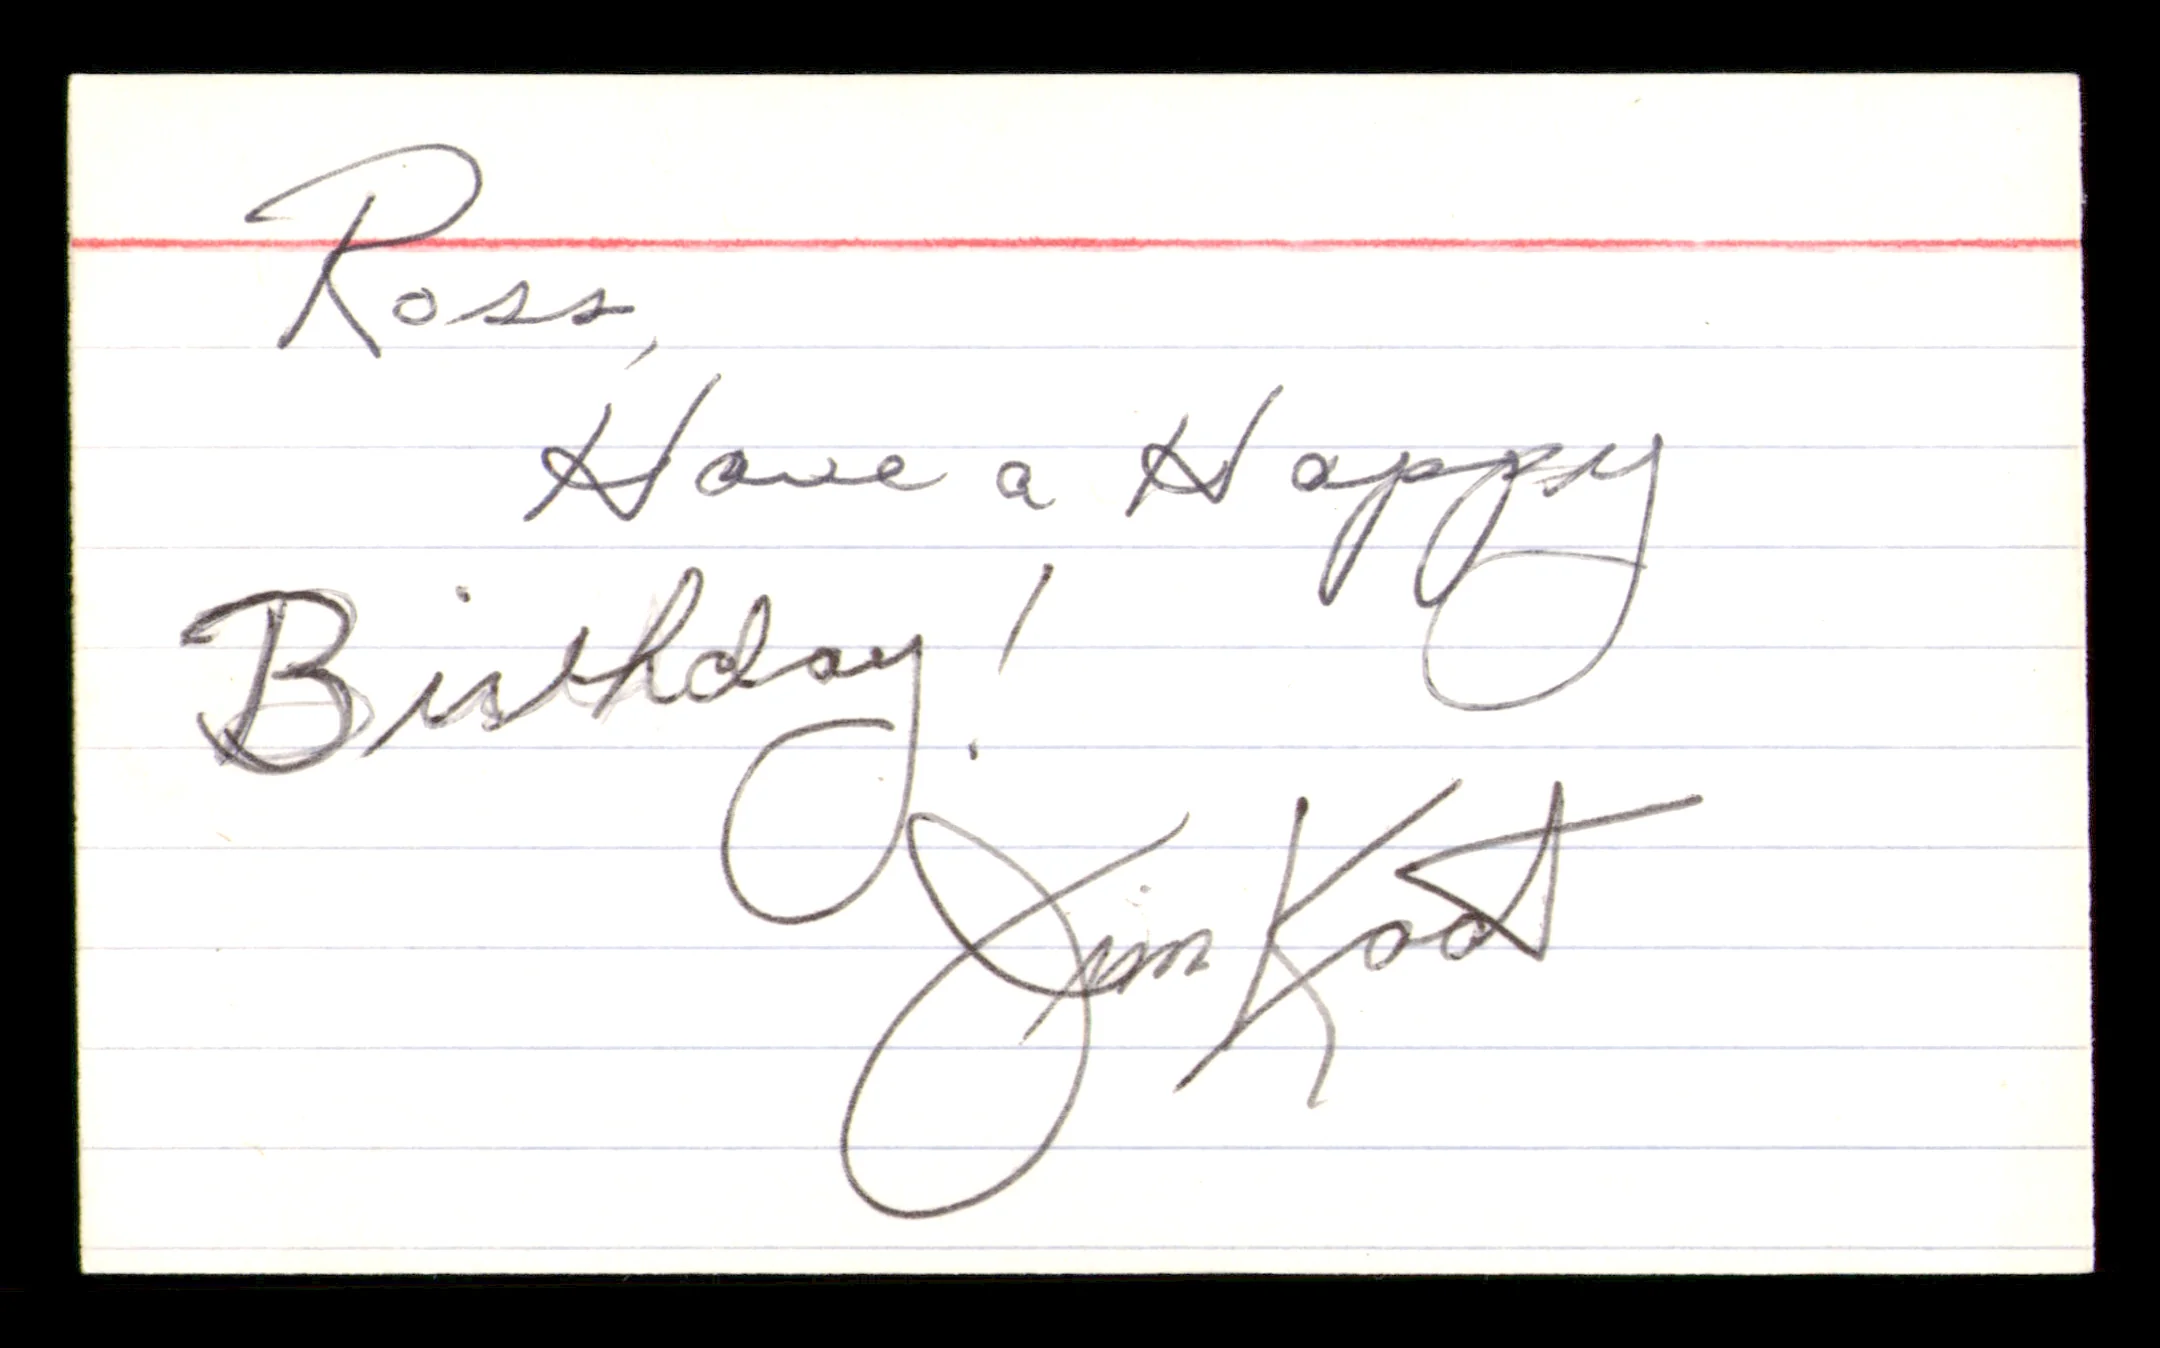 Ross,
Have a Happy
Birthday!
Jim Kaat